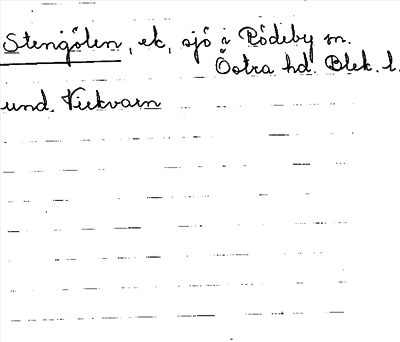 Stengölen, ek, sjö i Rödeby sn.
Östra hd. Blek. l.
und. Virkvarn